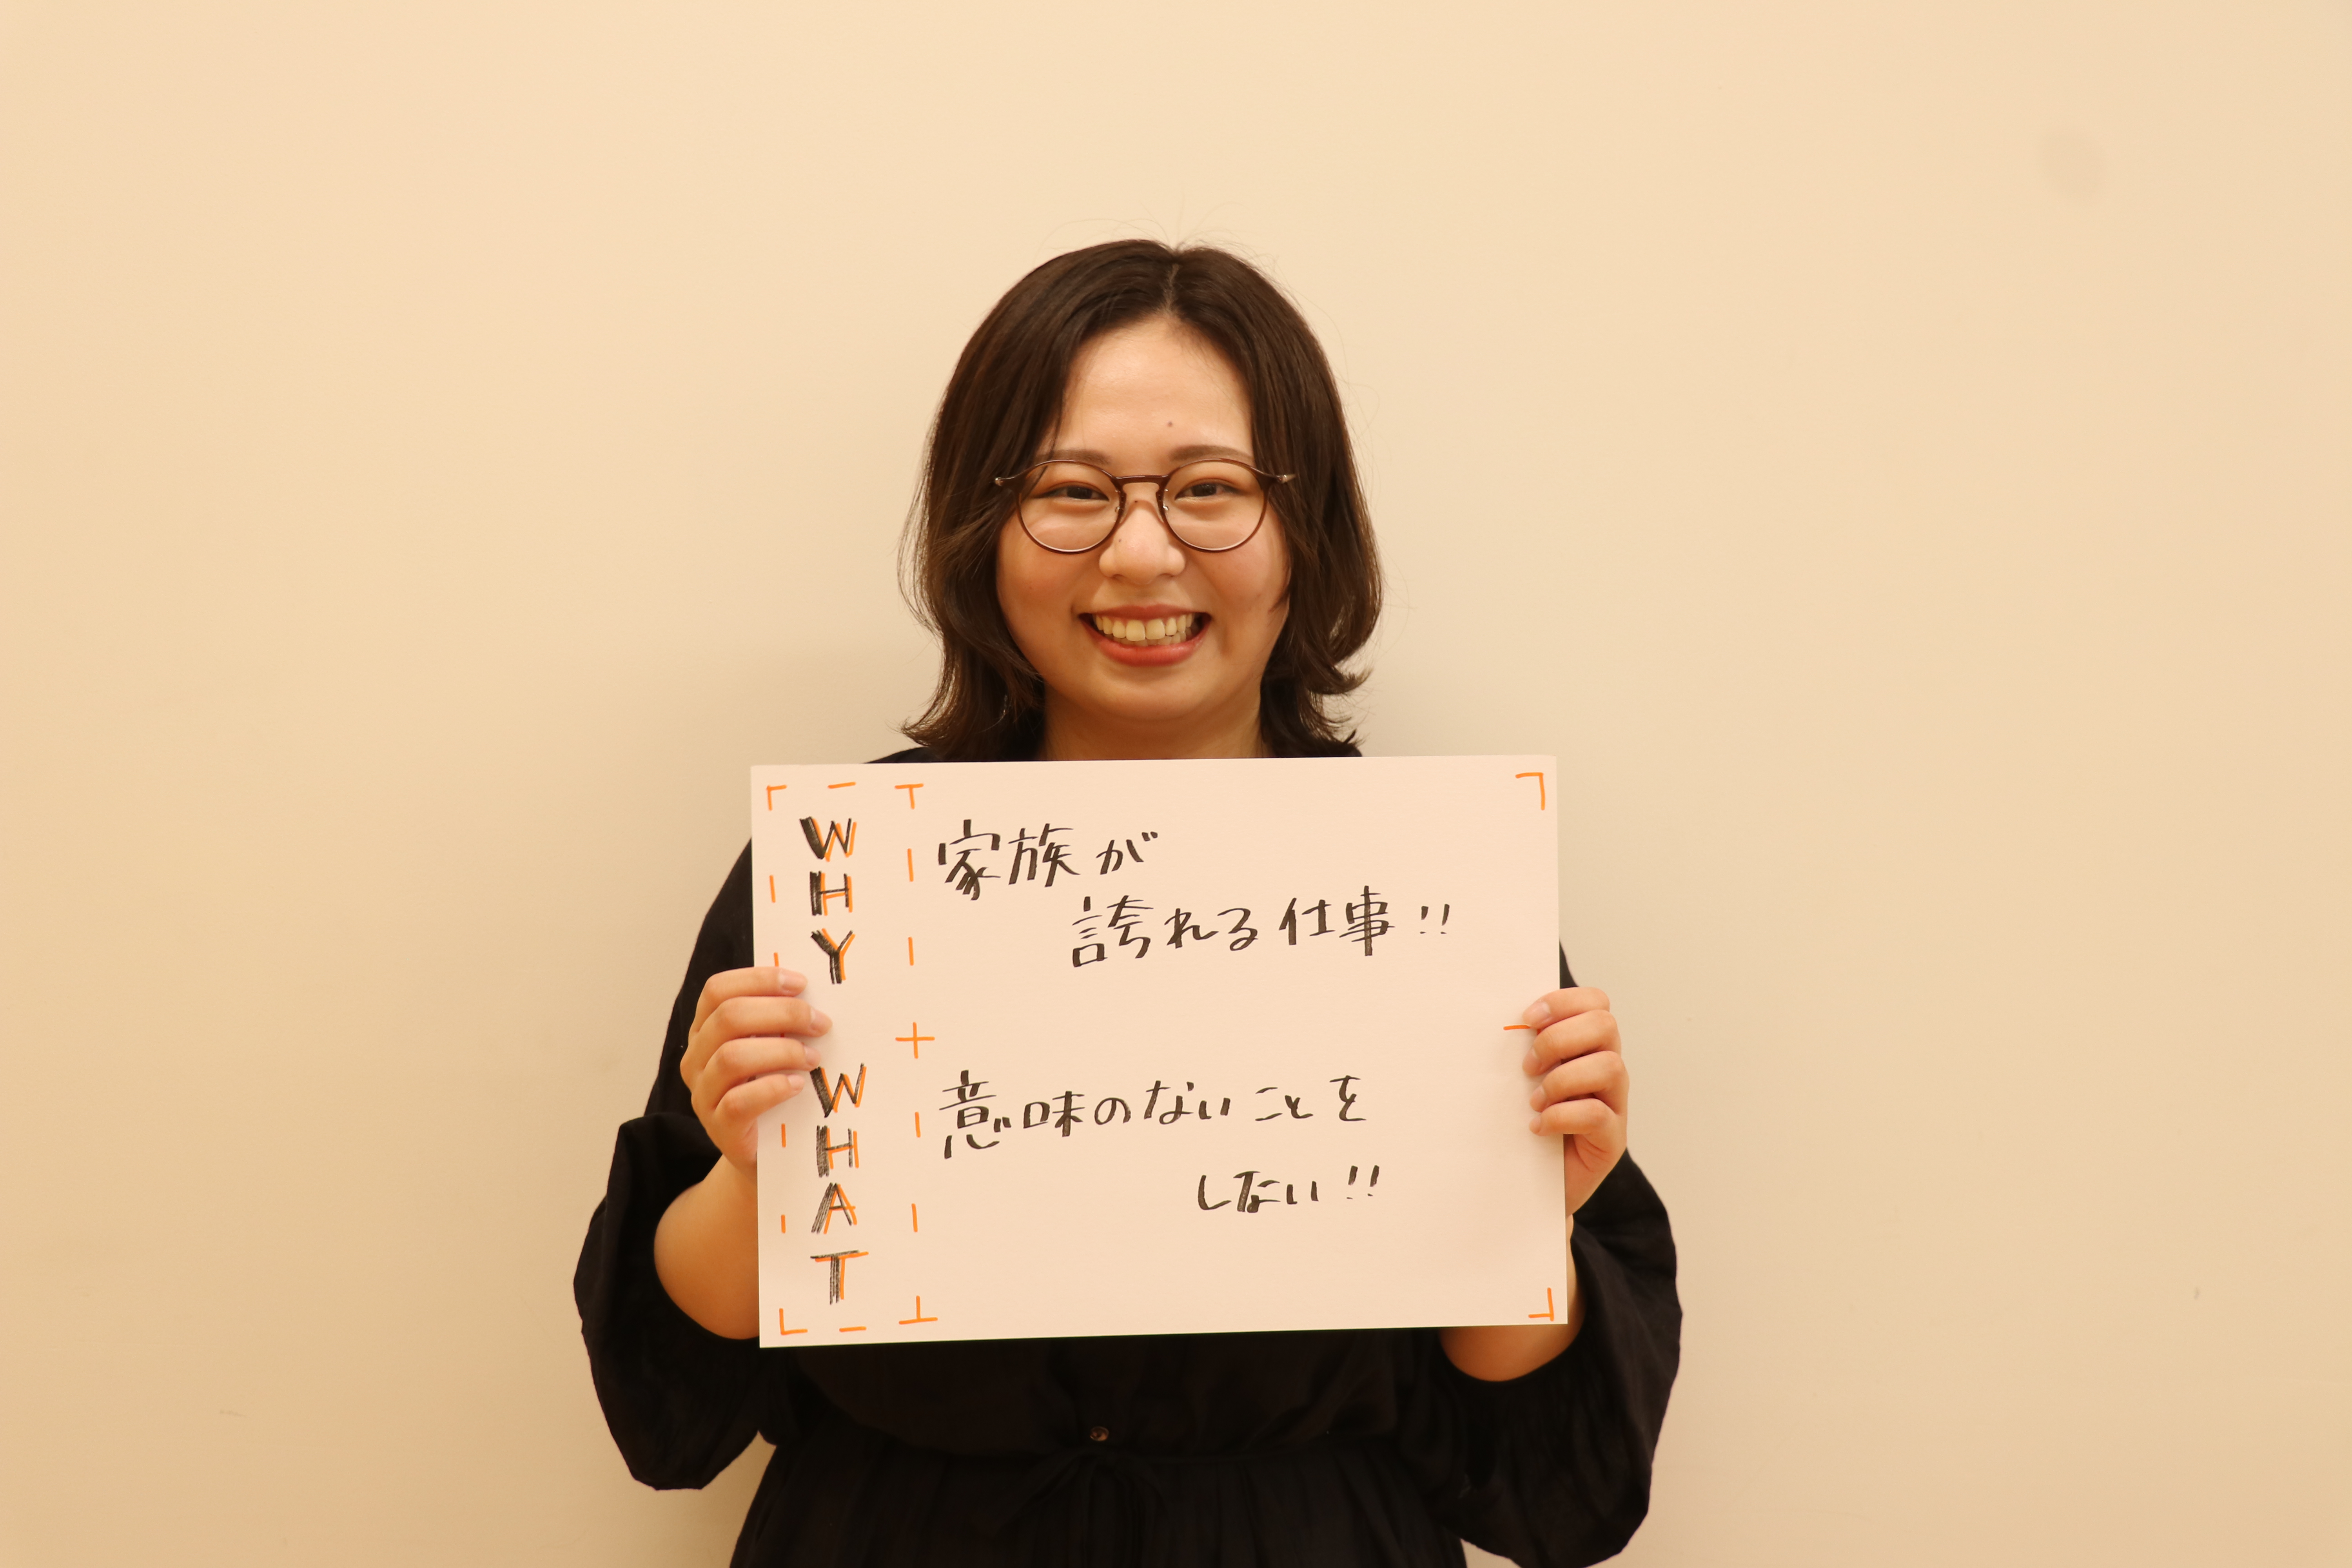 WHY
家族が
誇れる仕事!!
WHAT
意味のないことを
しない!!